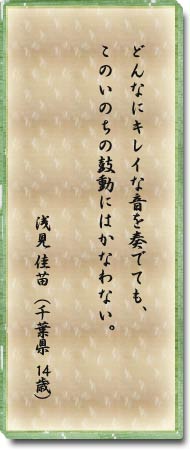 どんなにキレイな音を奏でても、
このいのちの鼓動にはかなわない。
浅見 佳苗 （千葉県 14歳）